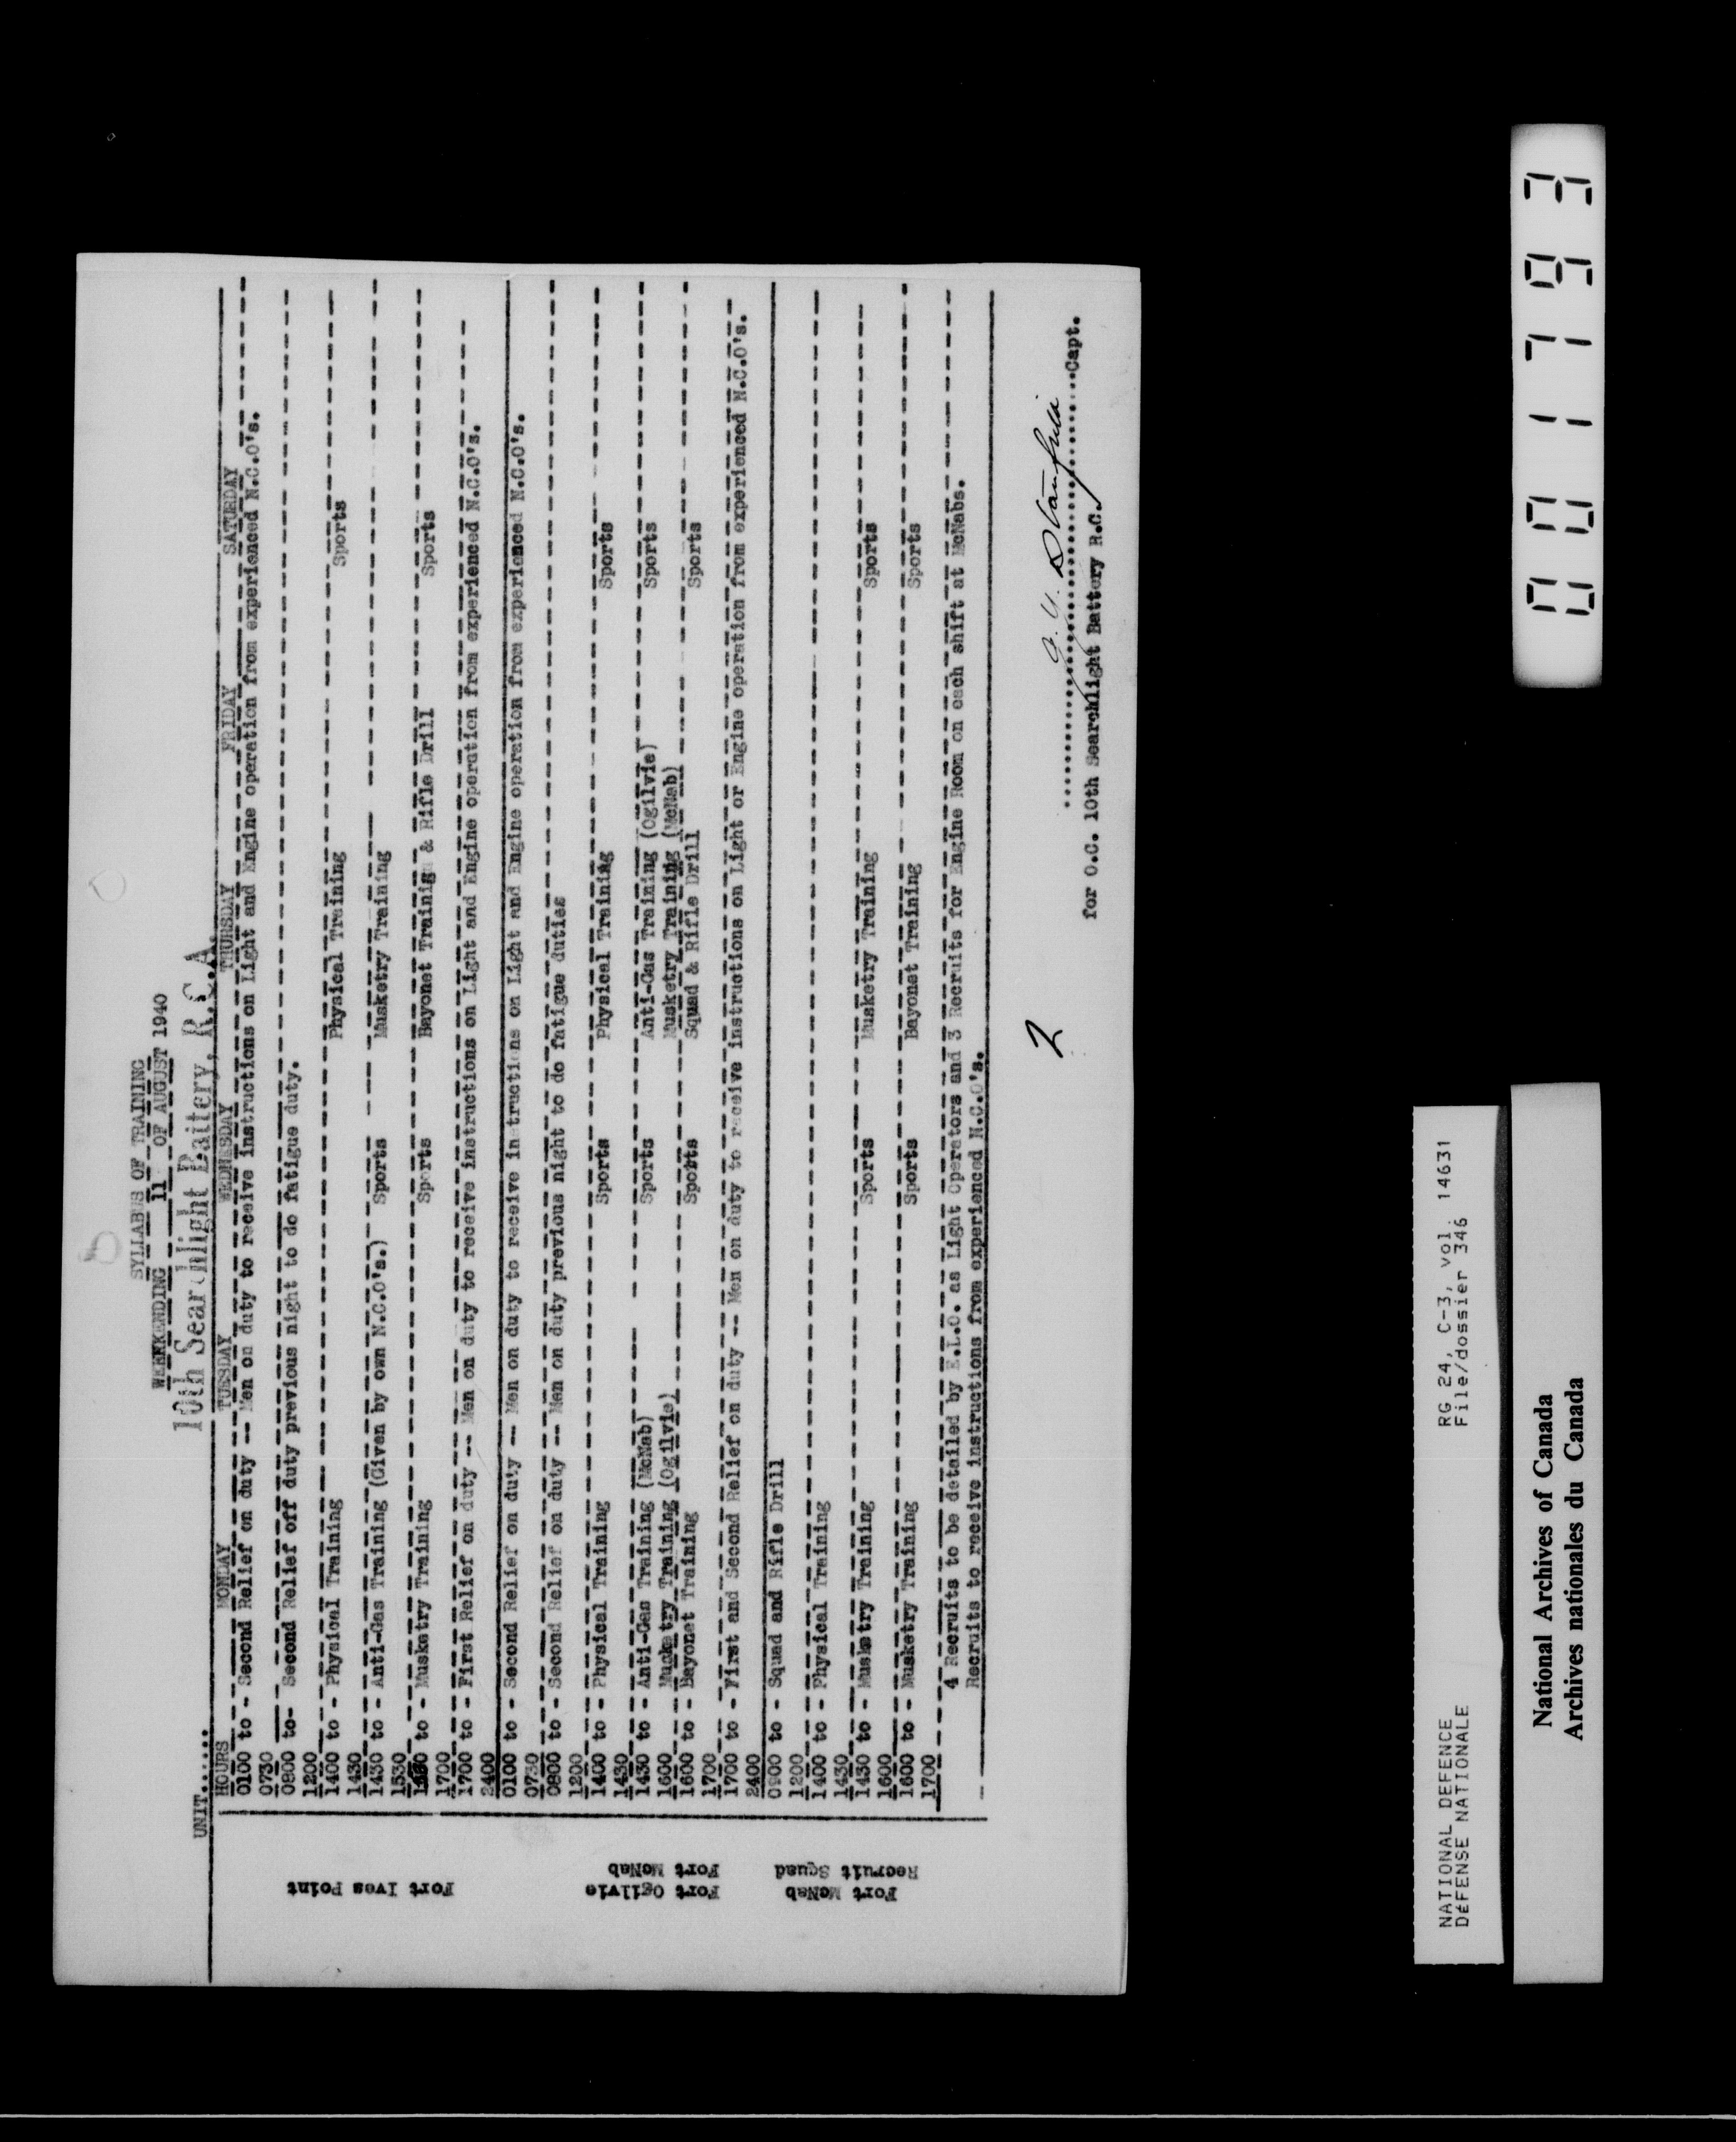 SYLLABUS OF TRAINING
WEEKENDING 11 OF AUGUST 1940
UNIT...... 10th Searchlight Battery, R.C.A.
HOURS MONDAY TUESDAY WEDNESDAY THURSDAY FRIDAY SATURDAY
Fort Ives Point
0100 to - Second Relief on duty -- Men on duty to receive instructions on Light and Engine operation from experienced N.C.O's.
0730
0800 to- Second Relief off duty previous night to do fatigue duty.
1200
1400 to - Physical Training Physical Training Sports
1430
1430 to - Anti-Gas Training (Given by own N.C.O's.) Sports Musketry Training
1530
to - Musketry Training Sports Bayonet Training & Rifle Drill Sports
1700
1700 to - First Relief on duty -- Men on duty to receive instructions on Light and Engine operation from experienced N.C.O's.
2400
Fort Ogilvie
Fort McNab
0100 to - Second Relief on duty -- Men on duty to receive instructions on Light and Engine operation from experienced N.C.O's.
0730
0800 to - Second Relief on duty -- Men on duty previous night to do fatigue duties
1200
1400 to - Physical Training Sports Physical Training Sports
1430
1430 to - Anti-Gas Training (McNab) Sports Anti-Gas Training (Ogilvie) Sports
1600 Musketry Training (Ogilvie) Musketry Training (McNab)
1600 to - Bayonet Training Sports Squad & Rifle Drill Sports
1700
1700 to - First and Second Relief on duty -- Men on duty to receive instructions on Light or Engine operation from experienced N.C.O's.
2400
Fort McNab
Recruit Squad
0900 to - Squad and Rifle Drill
1200
1400 to - Physical Training
1430
1430 to - Musketry Training Sports Musketry Training Sports
1600
1600 to - Musketry Training Sports Bayonet Training Sports
1700
4 Recruits to be detailed by E.L.O. as Light Operators and 3 Recruits for Engine Room on each shift at McNabs.
Recruits to receive instructions from experienced N.C.O's.
..........Capt.
for O.C. 10th Searchlight Battery R.C.
2
NATIONAL DEFENCE RG 24, C-3, vol. 14631
DÉFENSE NATIONALE File/dossier 346
National Archives of Canada
Archives nationales du Canada
001793